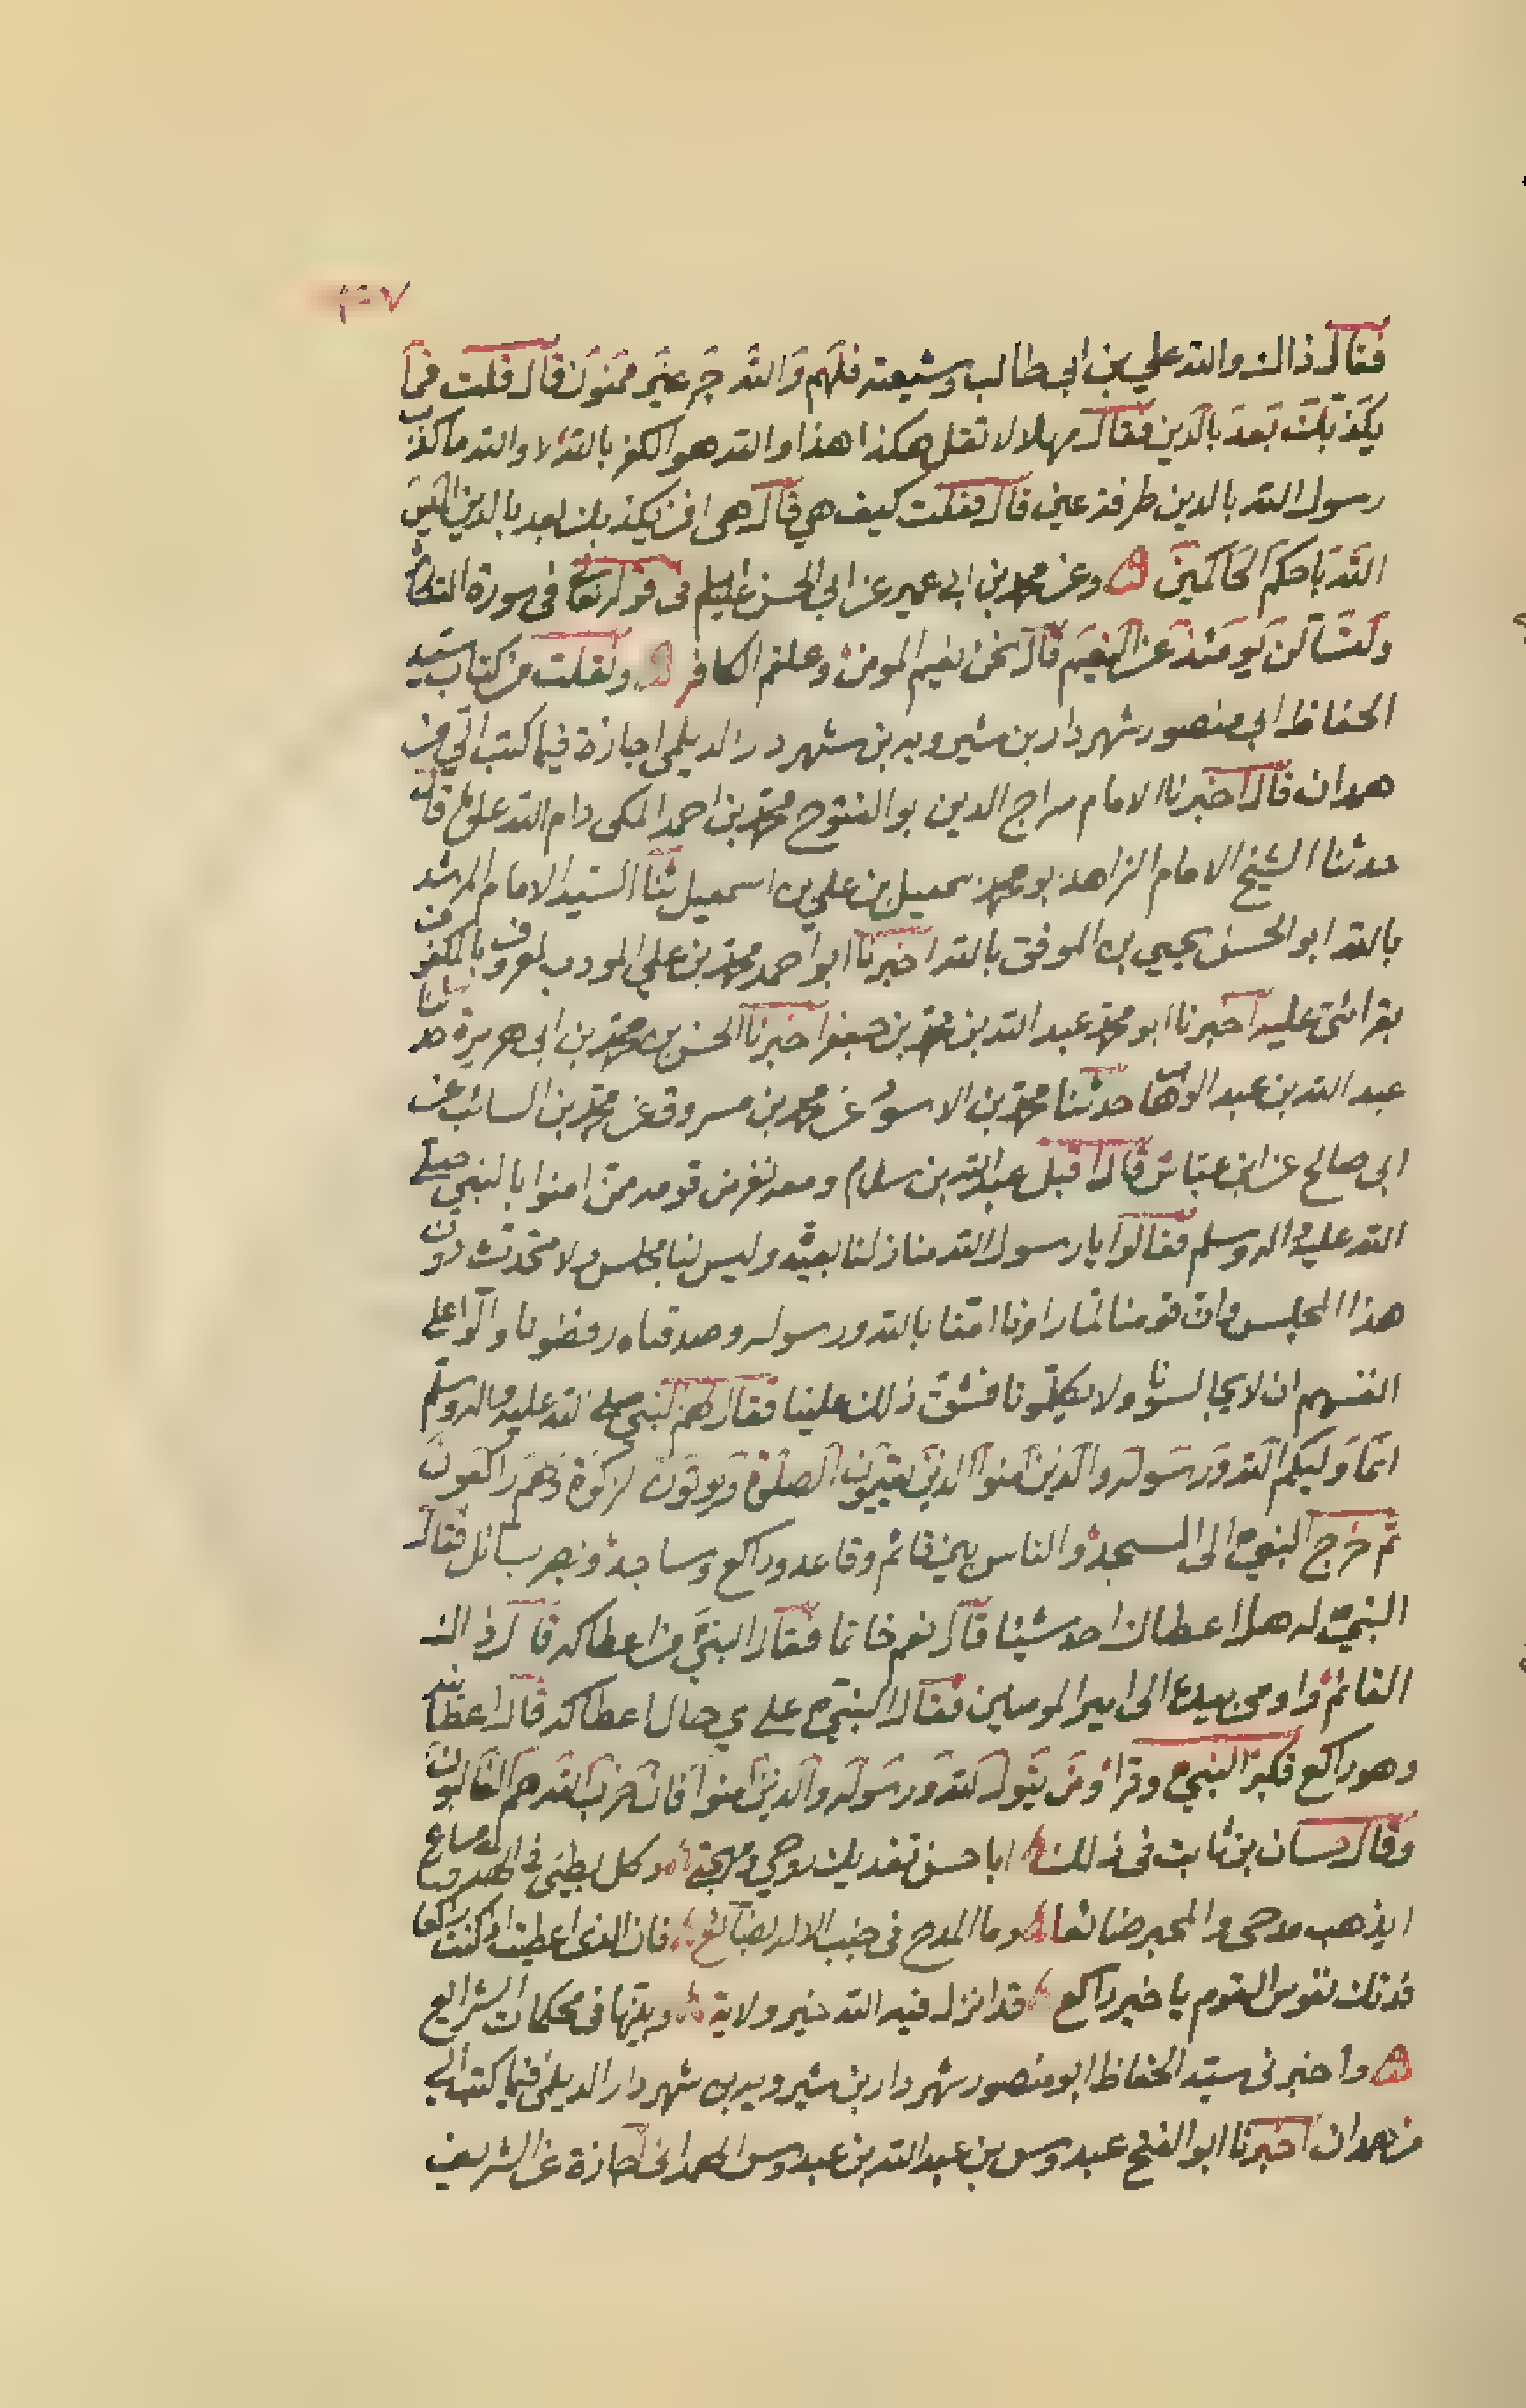 ٢٠٧
فقال ذاك والله علي بن ابي طالب وشيعته فلهم والله اجر غير ممنون قال قلت فما
يكذبك بعد بالدين فقال مهلا لا تقل هكذا هذا والله هو الكفر بالله لا والله ما كذب
رسول الله بالدين طرفة عين قال فقلت كيف هي قال هي افمن يكذبك بعد بالدين اليس
الله باحكم الحاكمين وعن محمد بن ابي عمير عن ابي الحسن عليه السلم في قوله تعالى في سورة التكاثر
ولتسألن يومئذ عن النعيم قال نحن نعيم المومن وعلقم الكافر ونقلت من كتاب سيد
الحفاظ ابي منصور شهردار بن شيرويه بن شهردار الديلمي اجازة فيما كتب الي من
همدان قال اخبرنا الامام سراج الدين ابو الفتوح محمد بن احمد المكي دام الله علوه قال
حدثنا الشيخ الامام الزاهد ابو محمد اسمعيل بن علي بن اسمعيل ثنا السيد الامام المرشد
بالله ابو الحسن يحيى بن الموفق بالله اخبرنا ابو احمد محمد بن علي المودب المعروف بالمكفوف
بقرائتي عليه اخبرنا ابو محمد عبد الله بن محمد بن جعفر اخبرنا الحسن بن محمد بن ابي هريرة حدثنا
عبد الله بن عبد الوهاب حدثنا محمد بن الاسود عن محمد بن مسروق عن محمد بن السائب عن
ابي صالح عن ابن عباس قال اقبل عبد الله بن سلام ومعه نفر من قومه ممن امنوا بالنبي صلى
الله عليه واله وسلم فقالوا يا رسول الله منازلنا بعيدة وليس لنا مجلس ولا متحدث دون
هذا المجلس وان قومنا لما راونا امنا بالله ورسوله وصدقناه رفضونا والوا على
انفسهم ان لا يجالسونا ولا يكلمونا فشق ذلك علينا فقال لهم النبي صلى الله عليه واله وسلم
انما وليكم الله ورسوله والذين امنوا الذين يقيمون الصلوة ويوتون الزكوة وهم راكعون
ثم خرج النبي الى المسجد والناس بين قائم وقاعد وراكع وساجد وبصر بسائل فقال
النبي له هل اعطاك احد شيئا قال نعم خاتما فقال النبي من اعطاكه قال ذاك
القائم واومى بيده الى امير المومنين فقال النبي على اي حال اعطاكه قال اعطاني
وهو راكع فكبر النبي وقرا ومن يتول الله ورسوله والذين امنوا فان حزب الله هم الغالبون
وقال حسان بن ثابت في ذلك ابا حسن تفديك روحي ومهجتي وكل بطيئ في الهدى ومسارع
ايذهب مدحي والمحبر ضائعا وما المدح في جنب الاله بضائع فانت الذي اعطيت اذ كنت راكعا
فدتك نفوس القوم يا خير راكع فانزل فيك الله خير ولاية وبينها في محكمات الشرايع
واخبرني سيد الحفاظ ابو منصور شهردار بن شيرويه بن شهردار الديلمي فيما كتب الي
من همدان اخبرنا ابو الفتح عبدوس بن عبد الله بن عبدوس الهمداني اجازة عن الشريف